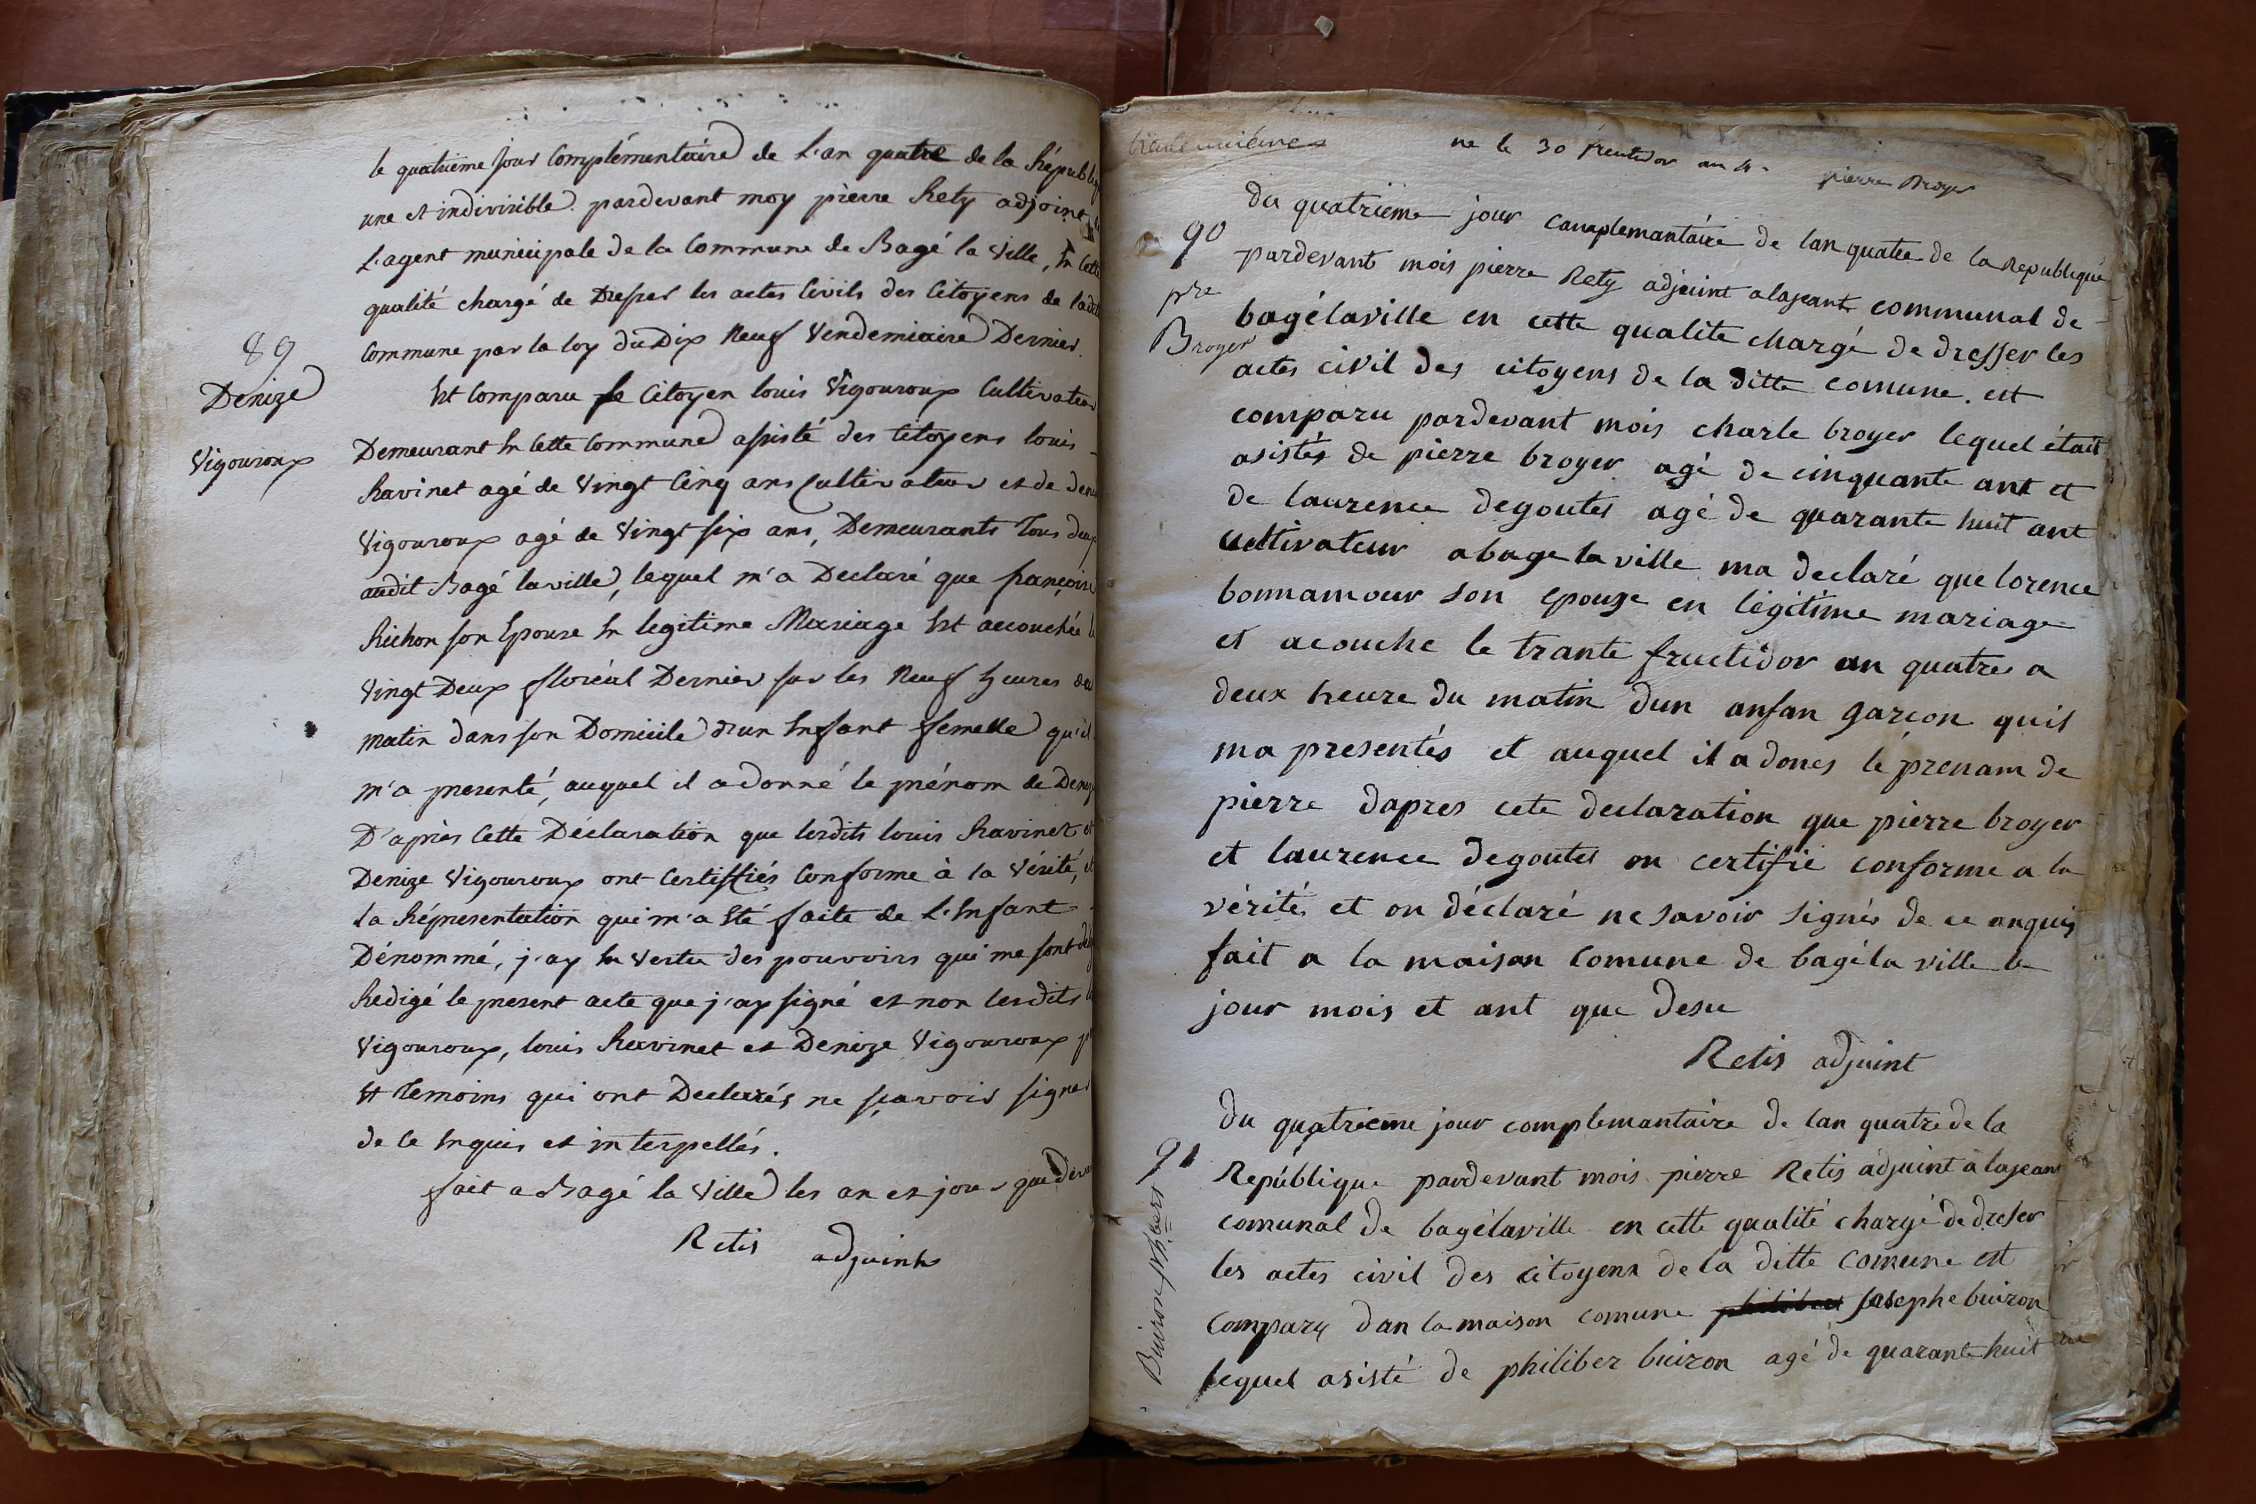 le quatrième Jour Complémentaire de L'an quatre de la Républiq
une et indivisible. pardevant moy pierre Rety adjoint
L'agent municipale de la Commune de Bagé la Ville, En Cette
qualité chargé de Dresser les actes Civils des Citoyens de ladite
Commune par la loy du Dix Neuf Vendemiaire Dernier.
89
Denize
Vigouroux
Est Comparu le Citoyen louis Vigouroux Cultivateur
Demeurant En Cette Commune assisté des Citoyens louis
Ravinet agé de Vingt Cinq ans Cultivateur et de deni
Vigouroux agé de Vingt six ans, Demeurants Tous deux
audit Bagé laville, lequel m'a Declaré que françoise
Richon son Epouse En legitime Mariage Est accouchée le
Vingt Deux floréal Dernier sur les Neuf heures du
matin dans son Domicile d'un Enfant femelle qu'il
m'a presenté, auquel il a donné le prénom de Deniz
D'après Cette Déclaration que lesdits louis Ravinet et
Denize Vigouroux ont Certiffiés Conforme à la Vérité, et
la Réprésentation qui m'a Eté faite de L'Enfant
Dénommé, j'ay En Vertu des pouvoirs qui me sont
Redigé le present acte que j'ay signé et non lesdits
Vigouroux, louis Ravinet et Denize Vigouroux
Et Temoins qui ont Declarés ne sçavoir signer
de Ce Enquis et interpellés.
fait a Bagé la Ville les an et jour que
Retis adjuint
trente unième
ne le 30 fructidor an 4. pierre Broyer
90
pre
Broyer
du quatrieme jour complemantaire de lan quatre de la Republique
pardevant mois pierre Rety adjuint a lajeant communal de
bagélaville en cette qualite chargé de dresser les
actes civil des citoyens de la ditte comune. est
comparu pardevant mois charle broyer lequel était
asistés de pierre broyer agé de cinquante ant et
de laurence degoutes agé de quarante huit ant
cultivateur a bage la ville ma declaré que lorence
bonnamour son epouze en légitime mariage
et acouche le trante fructidor an quatre a
deux heure du matin dun anfan garcon quil
ma presentés et auquel il a dones le prenam de
pierre dapres cete declaration que pierre broyer
et laurence degoutes on certifié conforme a la
vérités et on déclaré ne savoir signés de ce anquis
fait a la maison comune de bagéla ville le
jour mois et ant que desu
Retis adjuint
91
Buiron phbert
du quatrieme jour complemantaire de lan quatre de la
République pardevant mois pierre Retis adjuint à lajeant
comunal de bagélaville en cette qualité chargé de dreser
les actes civil des citoyens de la ditte comune est
compary dan la maison comune philibert josephe buiron
lequel asisté de philiber buiron agé de quarante huit